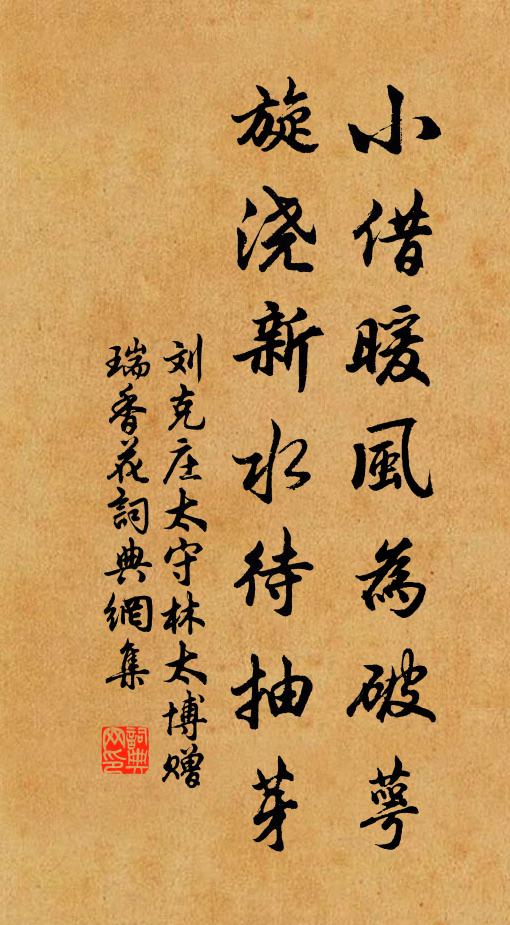 小借暖風為破萼
旋浇新水待抽芽
刘克庄太守林太博赠
瑞香花詞典網集
詞典网印